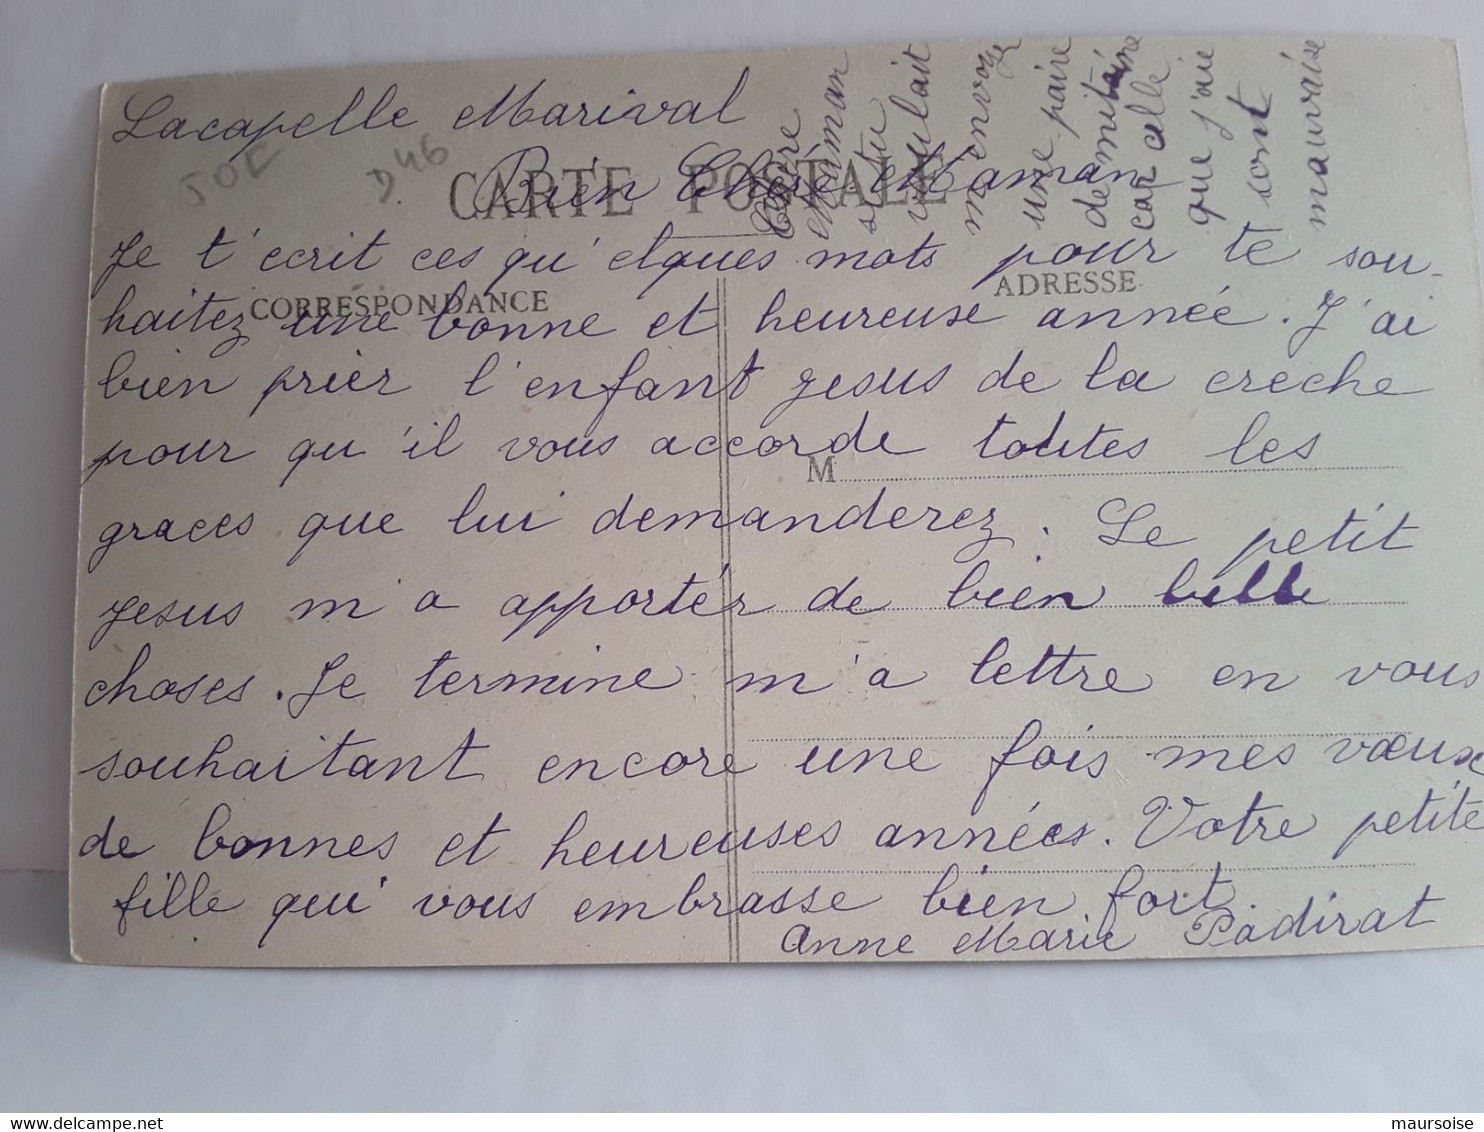 Lacapelle Marival
50E
D46
CARTE POSTALE
Bien Chère Maman
Je t'ecrit ces qu'elques mots pour te sou-
CORRESPONDANCE
ADRESSE
haitez une bonne et heureuse année. J'ai
bien prier l'enfant jesus de la creche
pour qu'il vous accorde toutes les
M
graces que lui demanderez. Le petit
jesus m'a apportér de bien belle
choses. Je termine m'a lettre en vous
souhaitant encore une fois mes vœux
de bonnes et heureuses années. Votre petite
fille qui vous embrasse bien fort
Anne Marie Padirat
Chère
Maman
si tu
voulait
m'envoyer
une paire
de mitaine
car celle
que j'aie
sont
mauvaise
maursoise